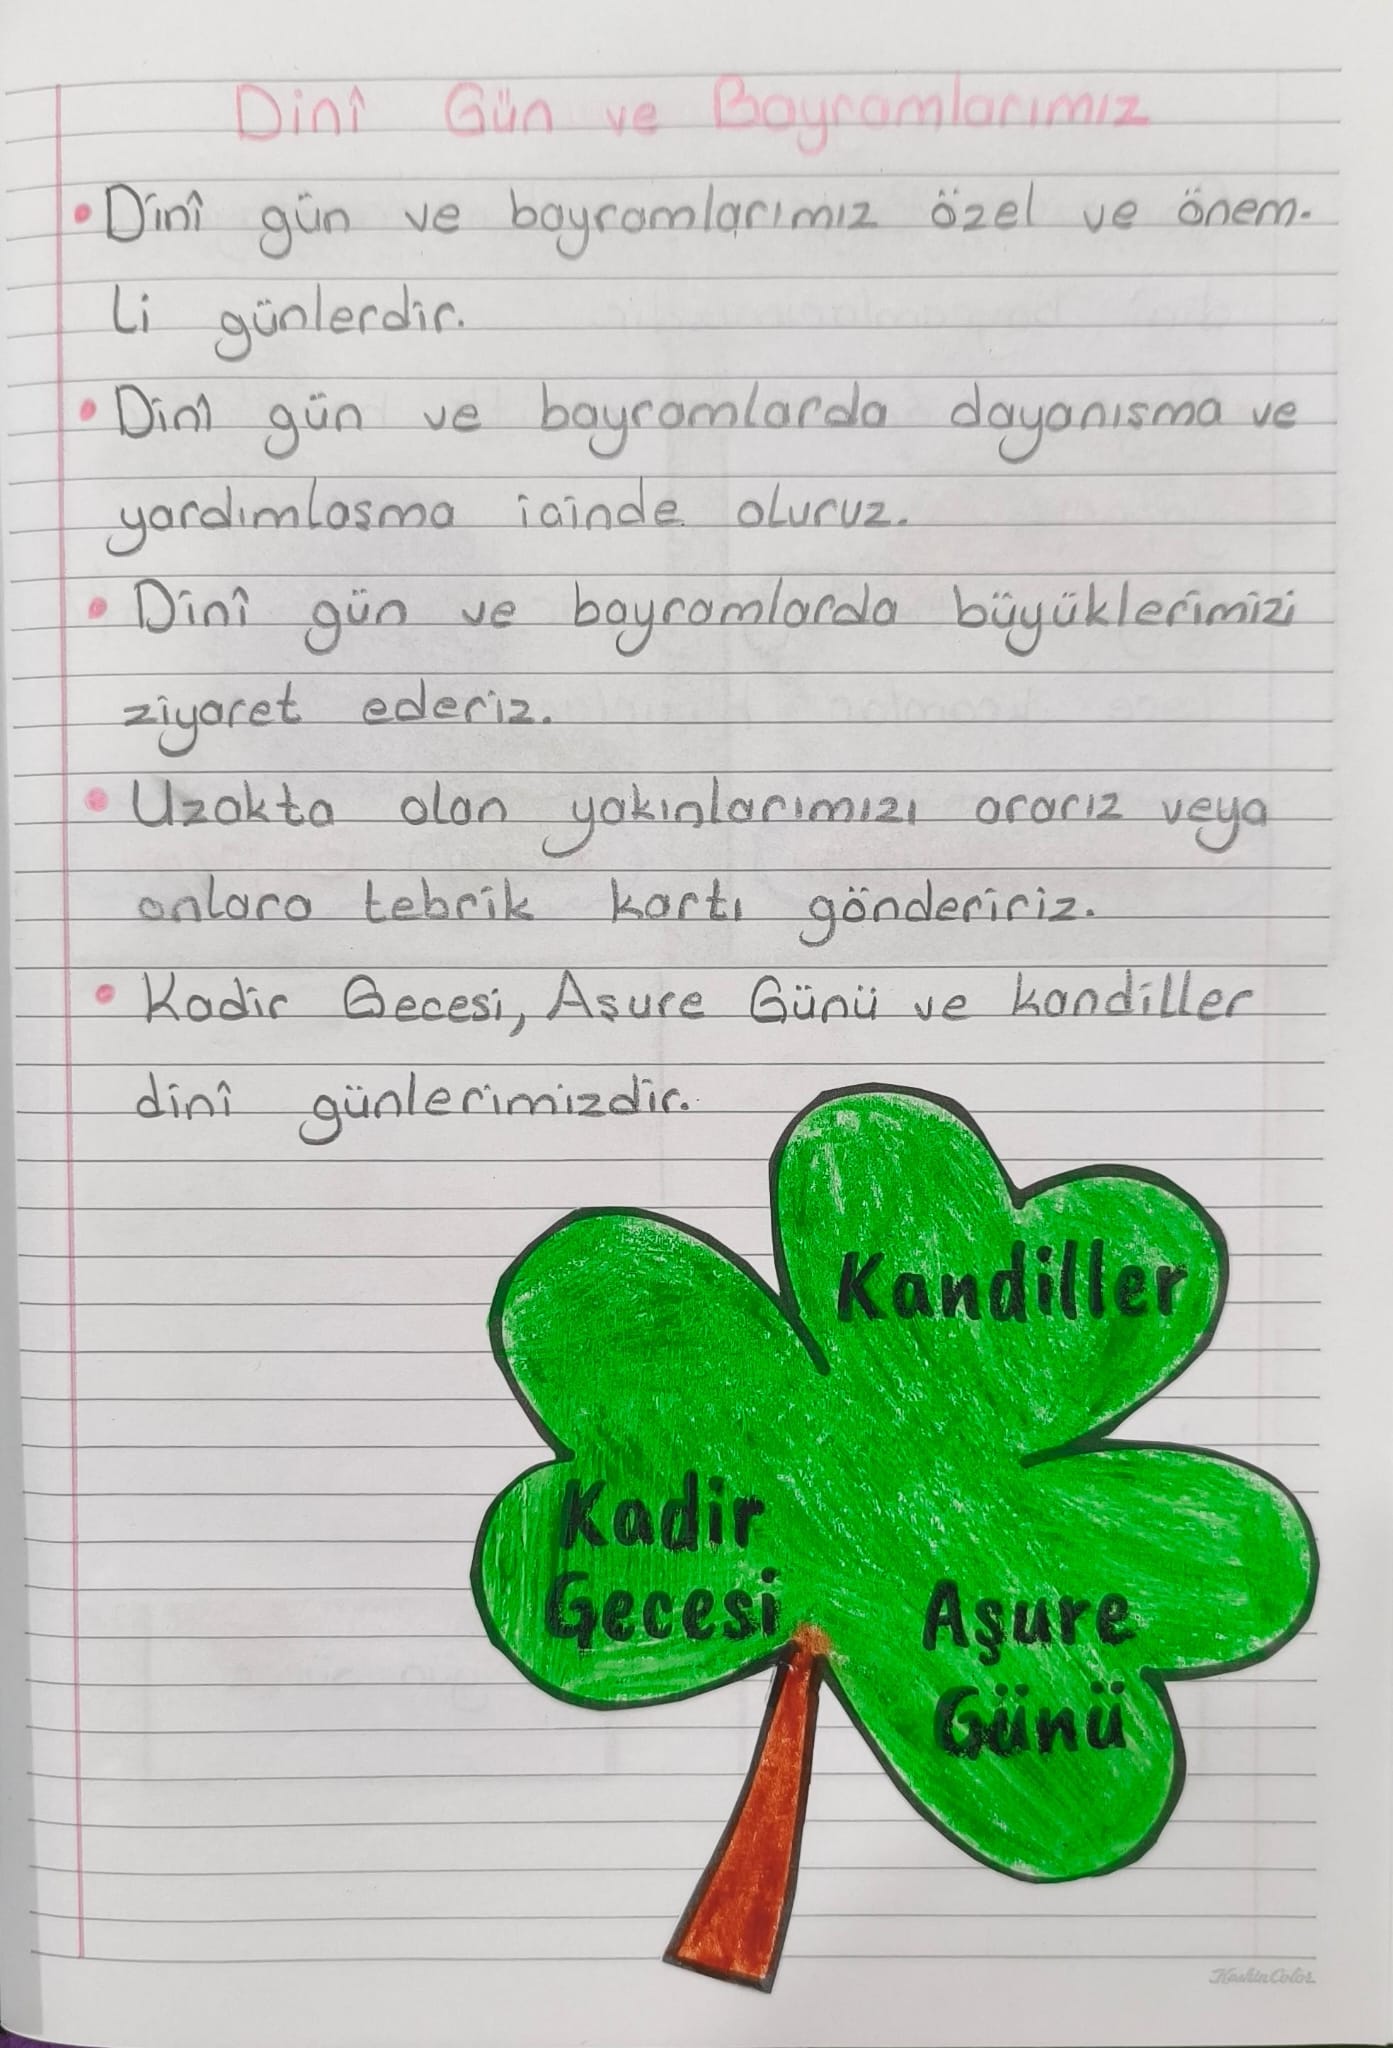 Dinî Gün ve Bayramlarımız
• Dinî gün ve bayramlarımız özel ve önem-
li günlerdir.
• Dinî gün ve bayramlarda dayanışma ve
yardımlaşma içinde oluruz.
• Dinî gün ve bayramlarda büyüklerimizi
ziyaret ederiz.
• Uzakta olan yakınlarımızı ararız veya
onlara tebrik kartı göndeririz.
• Kadir Gecesi, Aşure Günü ve kandiller
dinî günlerimizdir.
Kandiller
Kadir
Gecesi
Aşure
Günü
KeskinColor